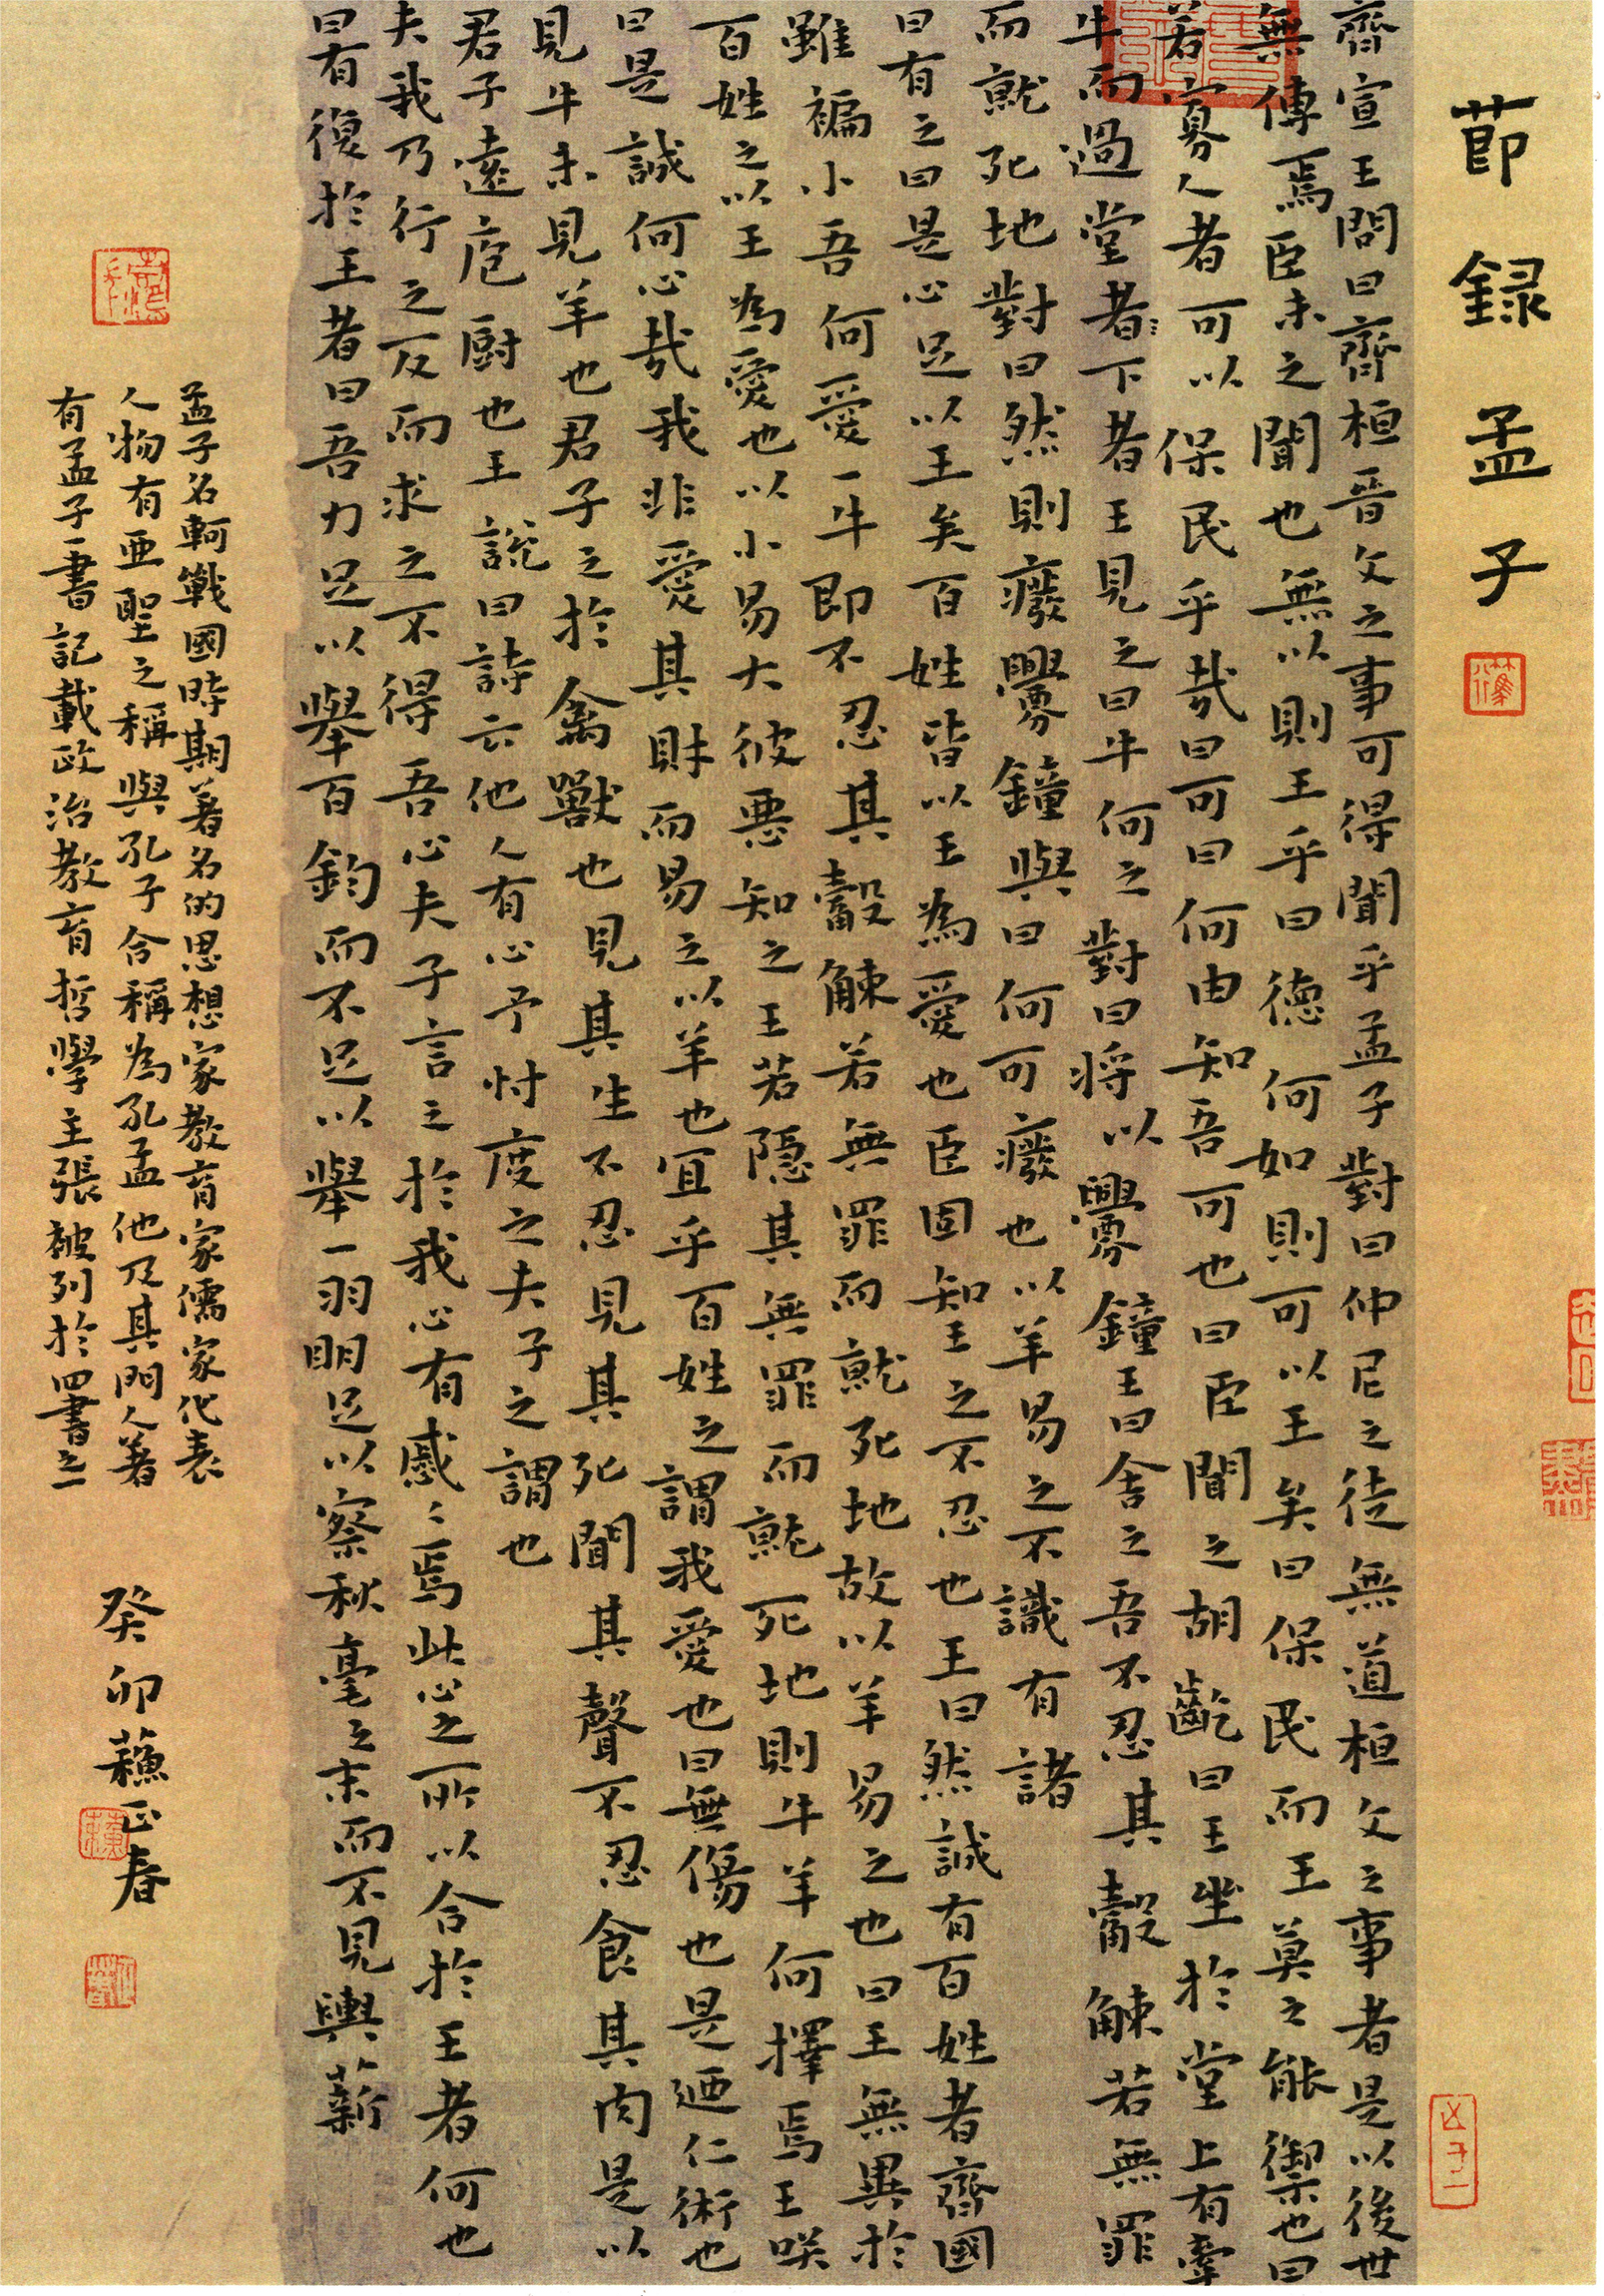 節録孟子
齊宣王問曰齊桓晉文之事可得聞乎孟子對曰仲尼之徒無道桓文之事者是以後世
無傳焉臣未之聞也無以則王乎曰德何如則可以王矣曰保民而王莫之能禦也曰
若寡人者可以保民乎哉曰可曰何由知吾可也曰臣聞之胡齕曰王坐於堂上有牽
牛而過堂者〻下者王見之曰牛何之對曰將以釁鐘王曰舍之吾不忍其觳觫若無罪
而就死地對曰然則廢釁鐘與曰何可廢也以羊易之不識有諸
曰有之曰是心足以王矣百姓皆以王為愛也臣固知王之不忍也王曰然誠有百姓者齊國
雖褊小吾何愛一牛即不忍其觳觫若無罪而就死地故以羊易之也曰王無異於
百姓之以王為愛也以小易大彼惡知之王若隱其無罪而就死地則牛羊何擇焉王咲
曰是誠何心哉我非愛其財而易之以羊也宜乎百姓之謂我愛也曰無傷也是迺仁術也
見牛未見羊也君子之於禽獸也見其生不忍見其死聞其聲不忍食其肉是以
君子遠庖厨也王說曰詩云他人有心予忖度之夫子之謂也
夫我乃行之反而求之不得吾心夫子言之於我心有慼〻焉此心之所以合於王者何也
曰有復於王者曰吾力足以舉百鈞而不足以舉一羽明足以察秋毫之末而不見輿薪
孟子名軻戰國時期著名的思想家教育家儒家代表
人物有亞聖之稱與孔子合稱為孔孟他及其門人著
有孟子一書記載政治教育哲學主張被列於四書之一
癸卯蘓正春